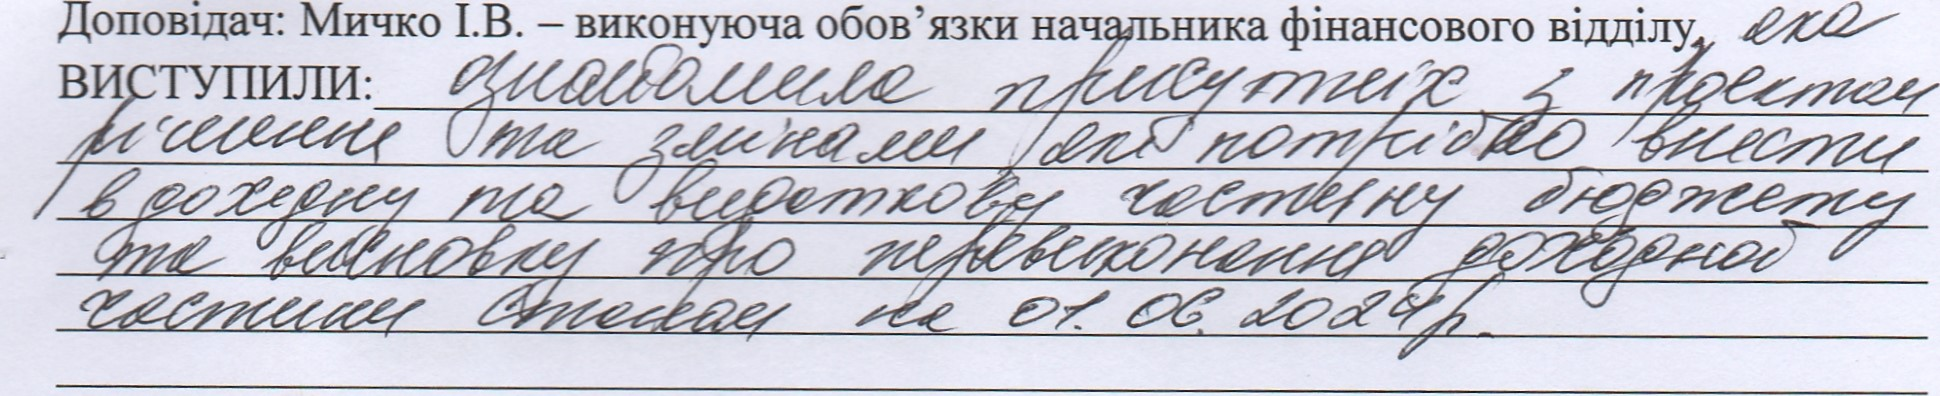 Доповідач: Мичко І.В. – виконуюча обов’язки начальника фінансового відділу, яка
ВИСТУПИЛИ: ознайомила присутніх з проектом
рішення та змінами які потрібно внести
в доходну та видаткову частину бюджету
та висновку про перевиконання доходної
частини станом на 01.06.2024р.